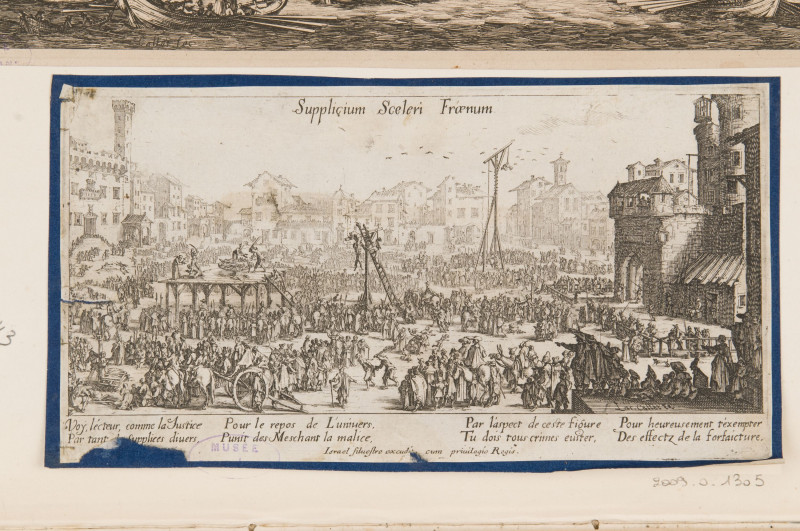 Supplicium Sceleri Frœnum
Voy, lecteur, comme la Justice
Par tant de supplices diuers,
Pour le repos de L'univers,
Punit des Meschant la malice,
Par l'aspect de ceste figure
Tu dois tous crimes euiter,
Pour heureusement t'exempter
Des effectz de la forfaicture.
Israel siluestre excudit cum privilegio Regis.
MUSÉE
2009.0.1305